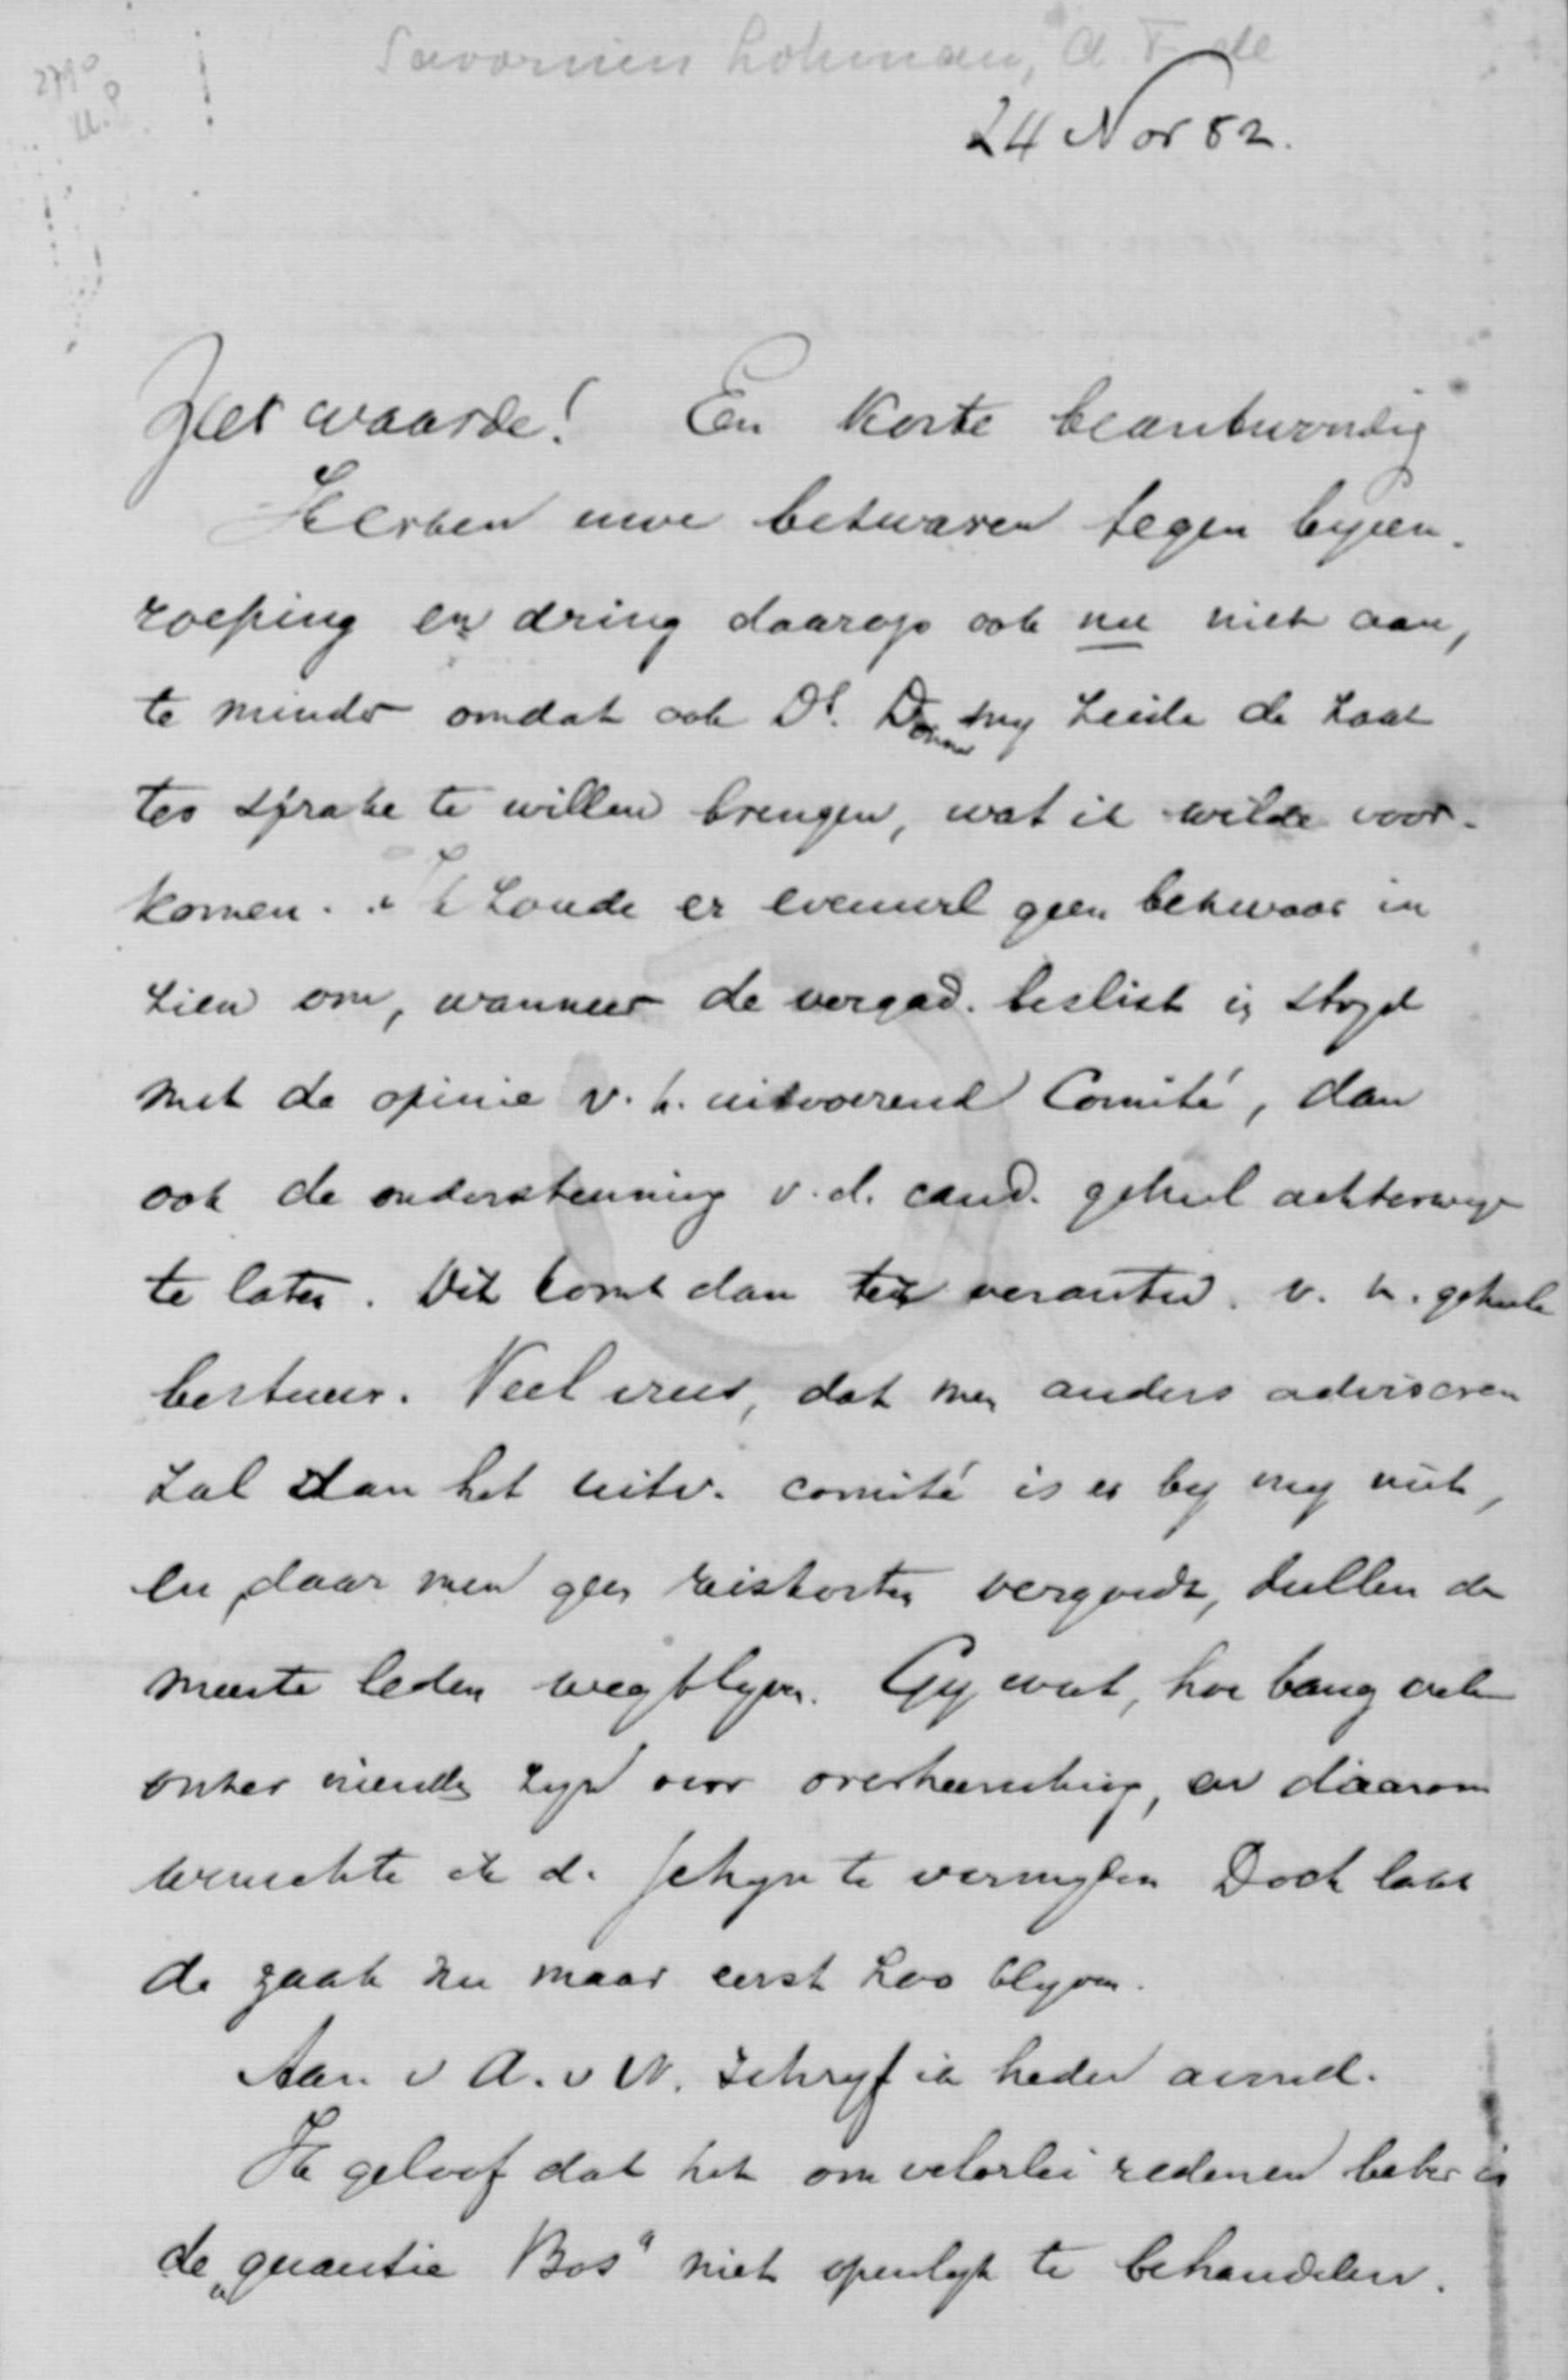 Savornin Lohman, A. F. de
2790
24 Nov 82.
Zeer waarde! Een korte beantwoording
Ik erken uwe bezwaren tegen byeen-
roeping en dring daarop ook nu niet aan,
te minder omdat ook Ds. Donner my zeide de zaak
ter sprake te willen brengen, wat ik wilde voor-
komen. Ik zoude er evenwel geen bezwaar in
zien om, wanneer de vergad. beslist in stryd
met de opinie v. h. uitvoerend Comité, dan
ook de ondersteuning v. d. cand. geheel achterwege
te laten. Dit komt dan ter verantw. v. h. geheele
bestuur. Veel vrees, dat men anders adviseren
zal dan het uitv. comité is er by my niet,
en, daar men geen reiskosten vergoedt, zullen de
meeste leden wegblyven. Gy weet, hoe bang vele
onzer vrienden zyn voor overheersching, en daarom
wenschte ik d. schyn te vermyden Doch laat
de zaak nu maar eerst zoo blyven.
Aan v A. v W. schryf ik heden avond.
Ik geloof dat het om velerlei redenen beter is
de „quaestie Bos" niet openlyk te behandelen.